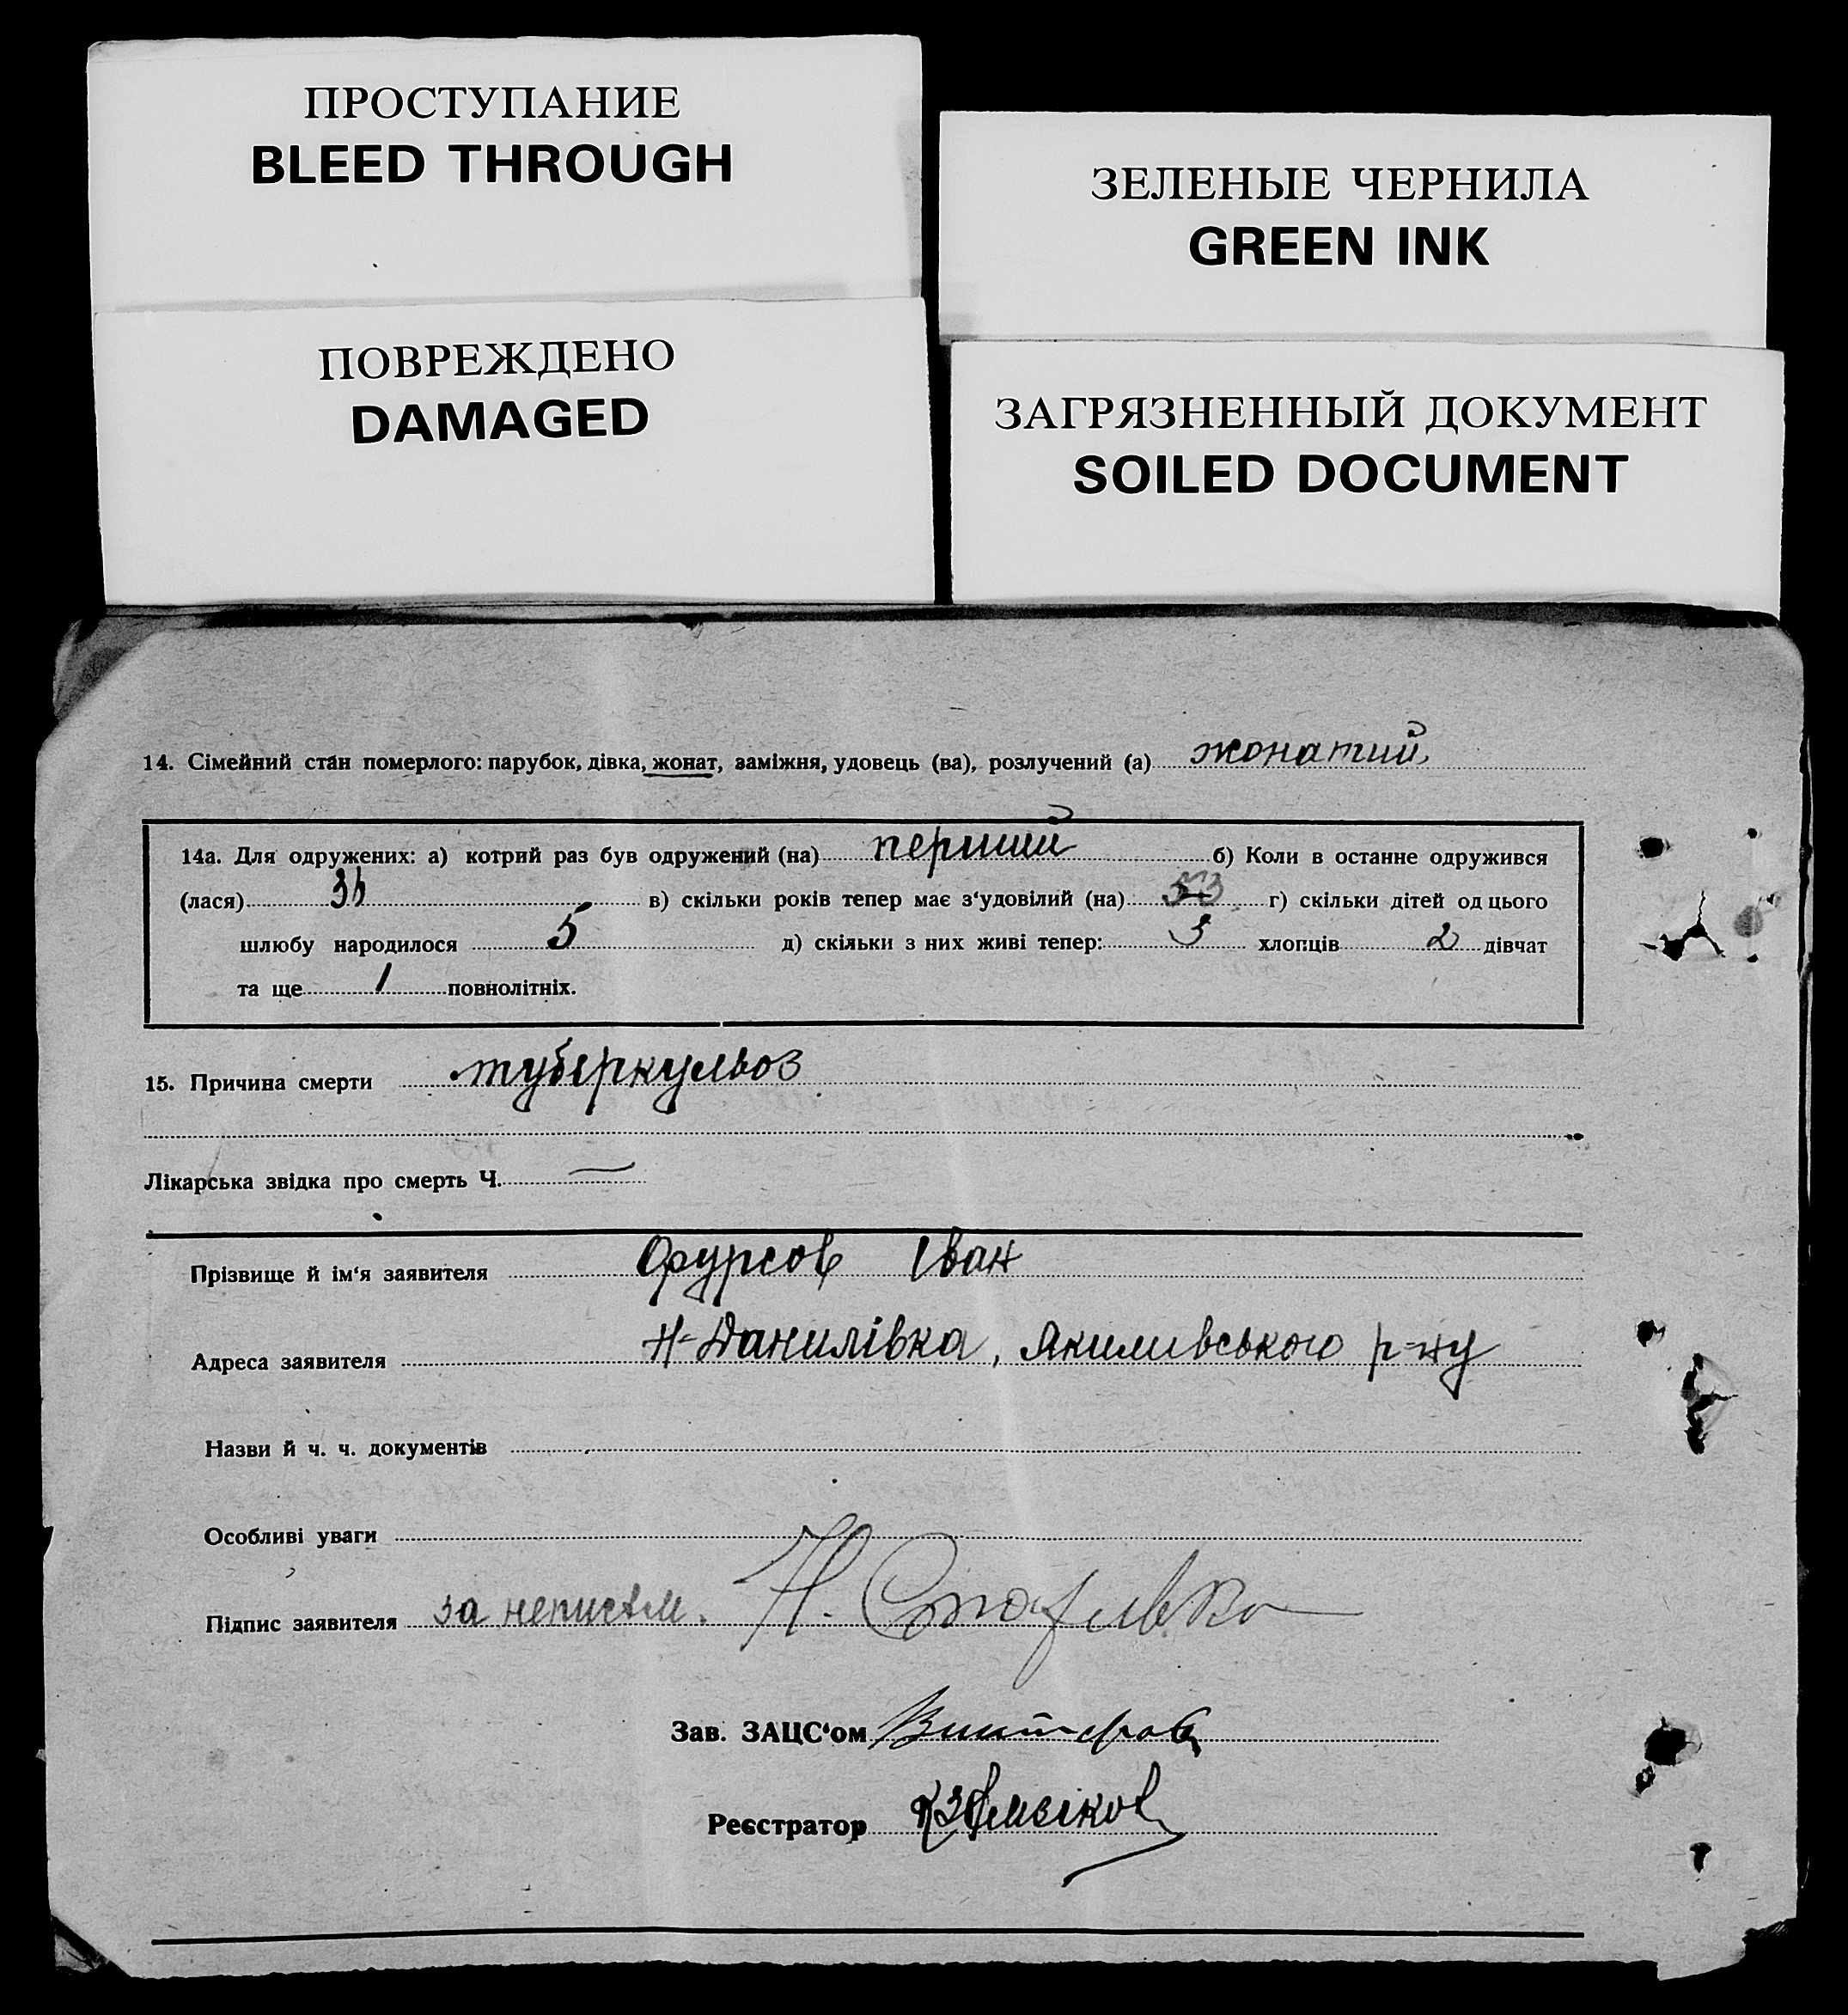 ПРОСТУПАНИЕ
BLEED THROUGH
ЗЕЛЕНЫЕ ЧЕРНИЛА
GREEN INK
ПОВРЕЖДЕНО
DAMAGED
ЗАГРЯЗНЕННЫЙ ДОКУМЕНТ
SOILED DOCUMENT
14. Сімейний стан померлого: парубок, дівка, жонат, заміжня, удовець (ва), розлучений (а) жонатий
14а. Для одружених: а) котрий раз був одружений (на) перший б) Коли в останне одружився
(лася) в) скільки років тепер має з‘удовілий (на) 53 г) скільки дітей од цього
шлюбу народилося 5 д) скільки з них живі тепер: 3 хлопців 2 дівчат
та ще 1 повнолітніх.
15. Причина смерти туберкульоз
Лікарська звідка про смерть Ч. —
Прізвище й ім‘я заявителя Фурсов Іван
Адреса заявителя Н-Данилівка, Якимивського р-ну
Назви й ч. ч. документів
Особливі уваги
Підпис заявителя за неписьм. Н.
Зав. ЗАЦС‘ом
Реєстратор